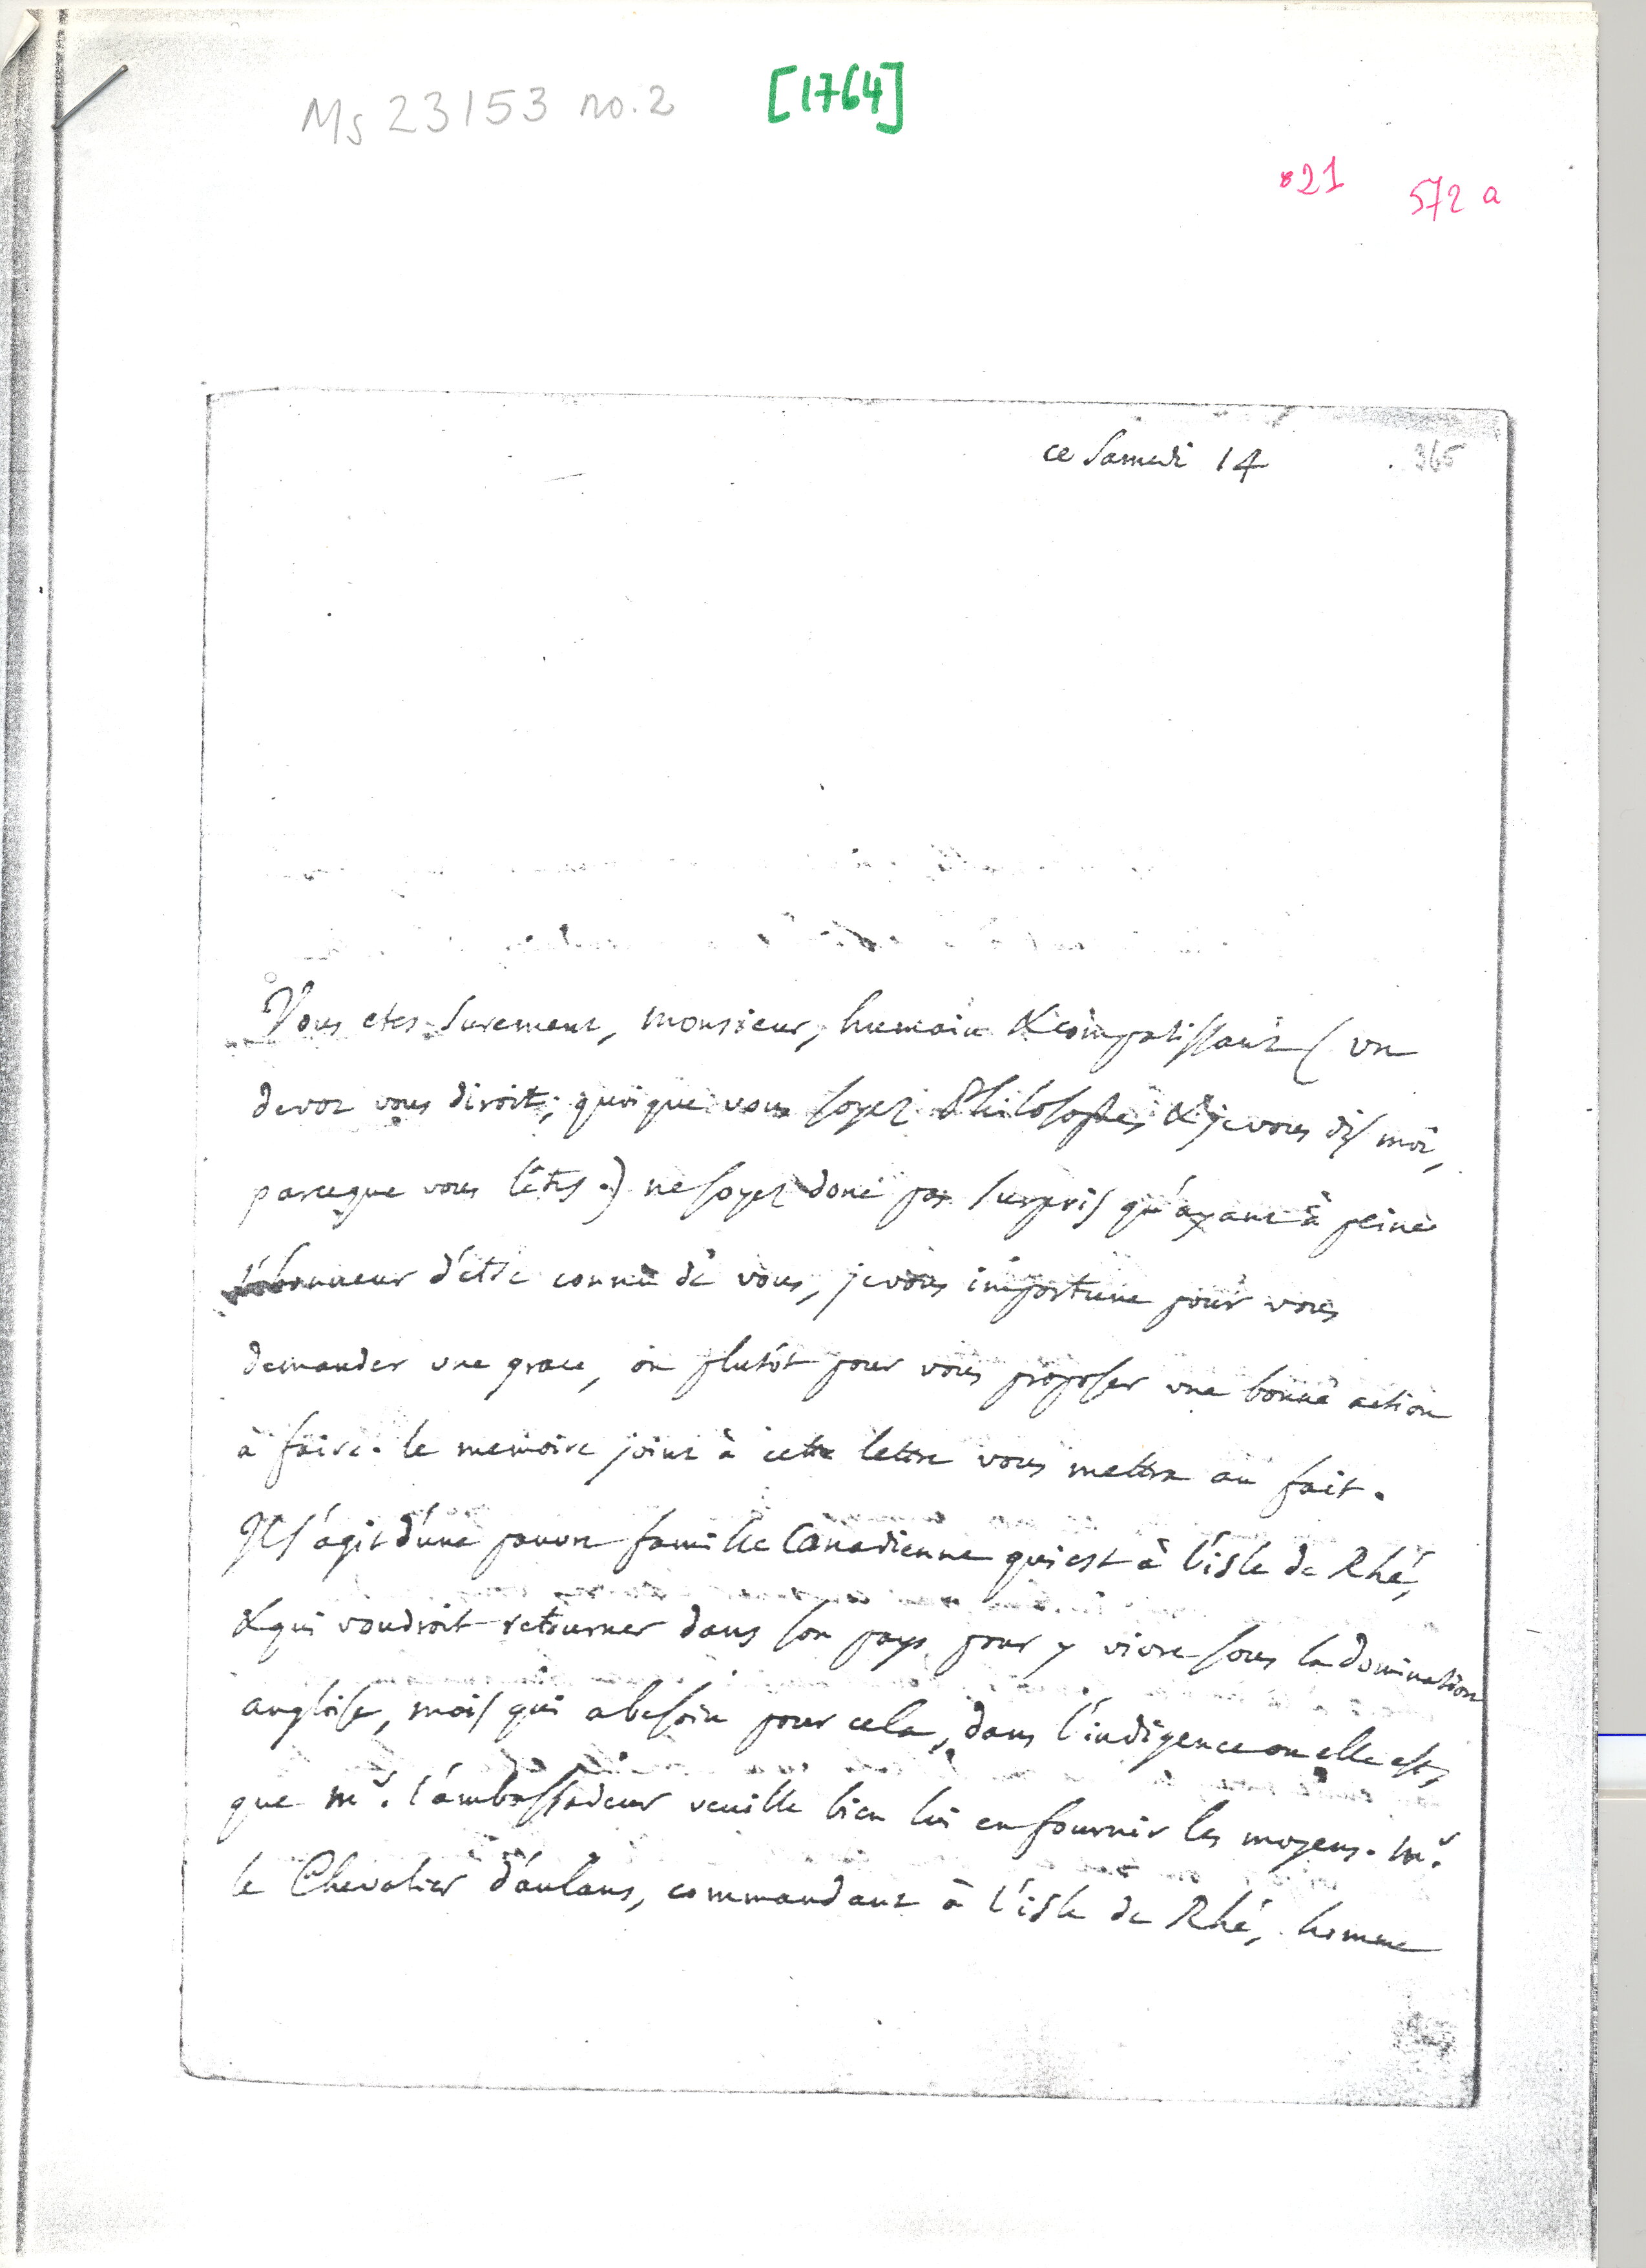 Ms 23153 no.2 [1764]
21 572 a
ce Samedi 14 365
Vous etes surement, monsieur, humain & compatissant (un
devot vous diroit, quoique vous soyez Philosophe, & je vous dis moi,
parceque vous l'êtes.) ne soyez donc pas surpris qu'ayant à peine
l'honneur d'etre connu de vous, je vous importune pour vous
demander une grace, ou plutôt pour vous proposer une bonne action
à faire. le memoire joint à cette lettre vous mettra au fait.
Il s'agit d'une pauvre famille Canadienne qui est à l'isle de Rhé,
& qui voudroit retourner dans son pays pour y vivre sous la domination
angloise, mais qui a besoin pour cela, dans l'indigence ou elle est,
que mr. l'ambassadeur veuille bien lui en fournir les moyens. mr.
le Chevalier d'aulans, commandant à l'isle de Rhé, homme